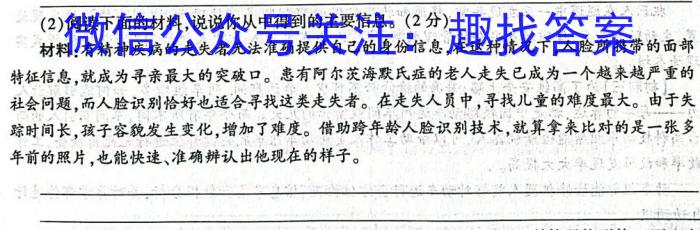 (2)阅读下面的材料,说说你从中得到的主要信息。(2分)
微信公众号关注:趣找答案
材料:有精神疾病的走失者无法准确提供自己的身份信息,在这种情况下,人脸所携带的面部
特征信息,就成为寻亲最大的突破口。患有阿尔茨海默氏症的老人走失已成为一个越来越严重的
社会问题,而人脸识别恰好也适合寻找这类走失者。在走失人员中,寻找儿童的难度最大。由于失
踪时间长,孩子容貌发生变化,增加了难度。借助跨年龄人脸识别技术,就算拿来比对的是一张多
年前的照片,也能快速、准确辨认出他现在的样子。